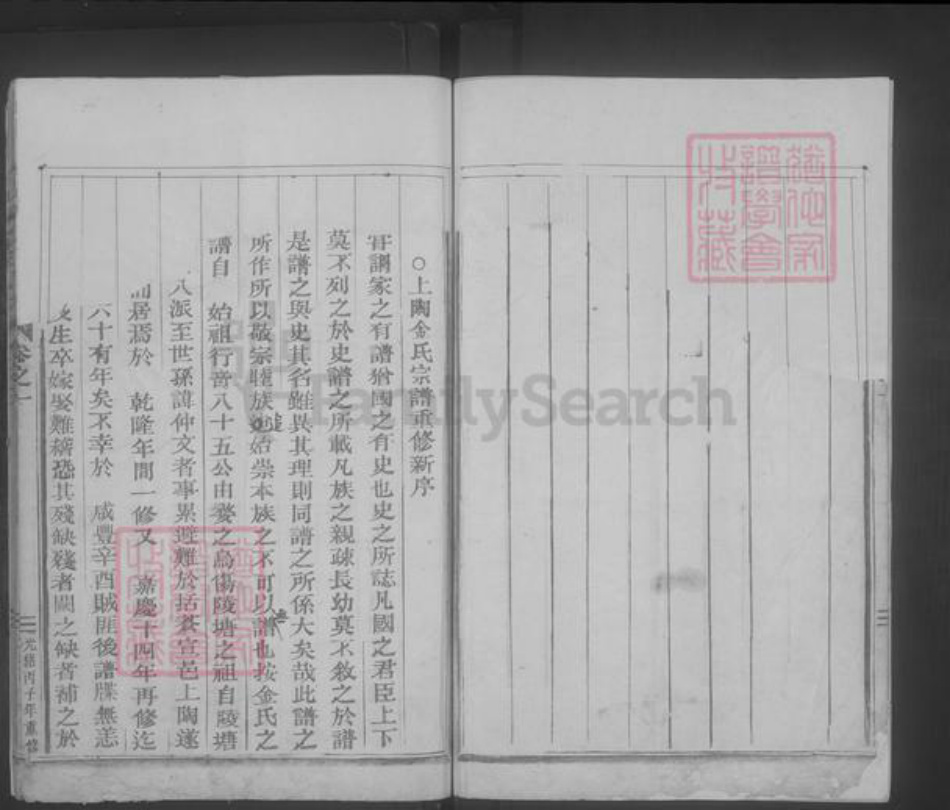 ○上陶金氏宗譜重修新序
甞謂家之有譜猶國之有史也史之所誌凡國之君臣上下
莫不列之於史譜之所載凡族之親疎長幼莫不敘之於譜
是譜之與史其名雖異其理則同譜之所係大矣哉此譜之
所作所以敬宗睦族追始崇本族之不可以無譜也按金氏之
譜自 始祖行啻八十五公由婺之烏傷陵塘之祖自陵塘
八派至世孫諱仲文者事累避難於括蒼宣邑上陶遂
居焉於 乾隆年間一修又 嘉慶十四年再修迄
六十有年矣不幸於 咸豐辛酉賊匪後譜牒無恙
生卒嫁娶難稽恐其殘缺殘者闕之缺者補之於
卷之一
光緒丙子年重修
譜學會
收藏
FamilySearch